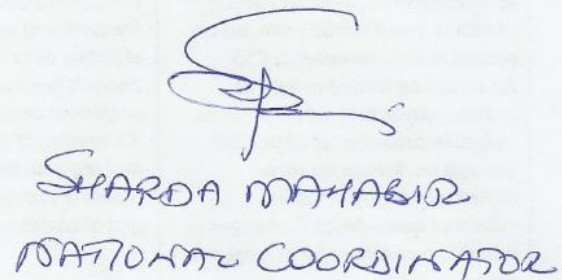 SHARDA MAHABIR
NATIONAL COORDINATOR